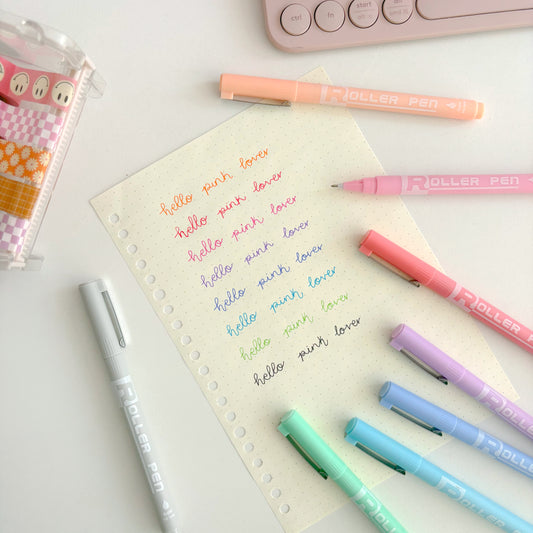 ctrl
fn
start
alt
ROLLER PEN
ROLLER PEN
hello pink lover
hello pink lover
hello pink lover
hello pink lover
hello pink lover
hello pink lover
hello pink lover
hello pink lover
ROLLER PEN
ROLLER PEN
ROLLER PEN
ROLLER PEN
ROLLER PEN
ROLLER PEN